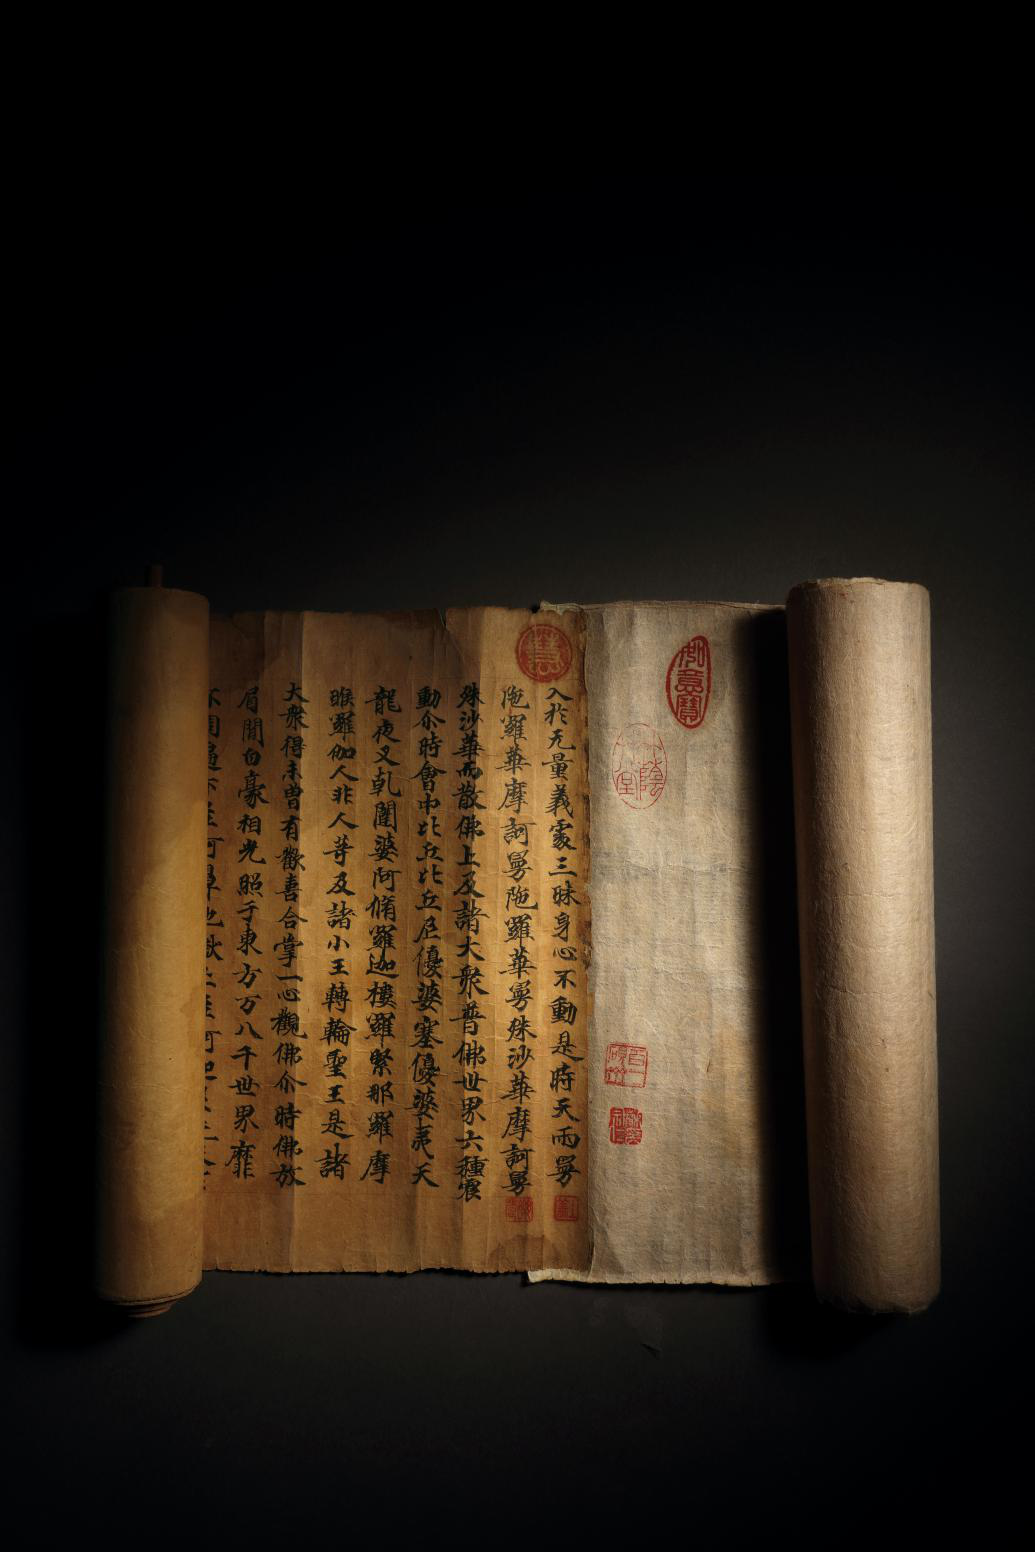 如意寶
入於无量義處三昧身心不動是時天雨曼
陁羅華摩訶曼陁羅華曼殊沙華摩訶曼
殊沙華而散佛上及諸大衆普佛世界六種震
動尒時會中比丘比丘尼優婆塞優婆夷天
龍夜叉乹闥婆阿脩羅迦樓羅緊那羅摩
睺羅伽人非人等及諸小王轉輪聖王是諸
大衆得未曾有歡喜合掌一心觀佛尒時佛放
眉間白豪相光照于東方万八千世界靡
不周遍下至阿鼻地獄上至阿迦